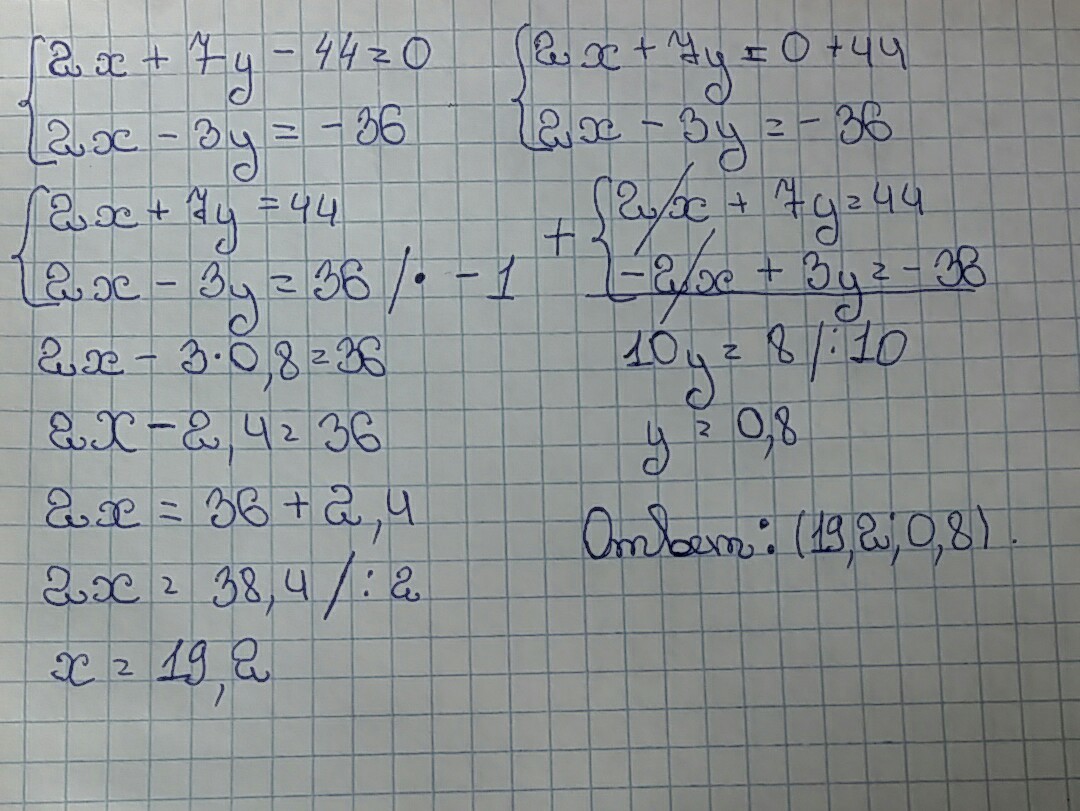 2x + 7y - 44 = 0
2x - 3y = -36
2x + 7y = 0 + 44
2x - 3y = -36
2x + 7y = 44
2x - 3y = 36 / · -1
+
2x + 7y = 44
-2x + 3y = -36
10y = 8 / : 10
y = 0,8
2x - 3 · 0,8 = 36
2x - 2,4 = 36
2x = 36 + 2,4
2x = 38,4 / : 2
x = 19,2
Ответ: (19,2; 0,8).